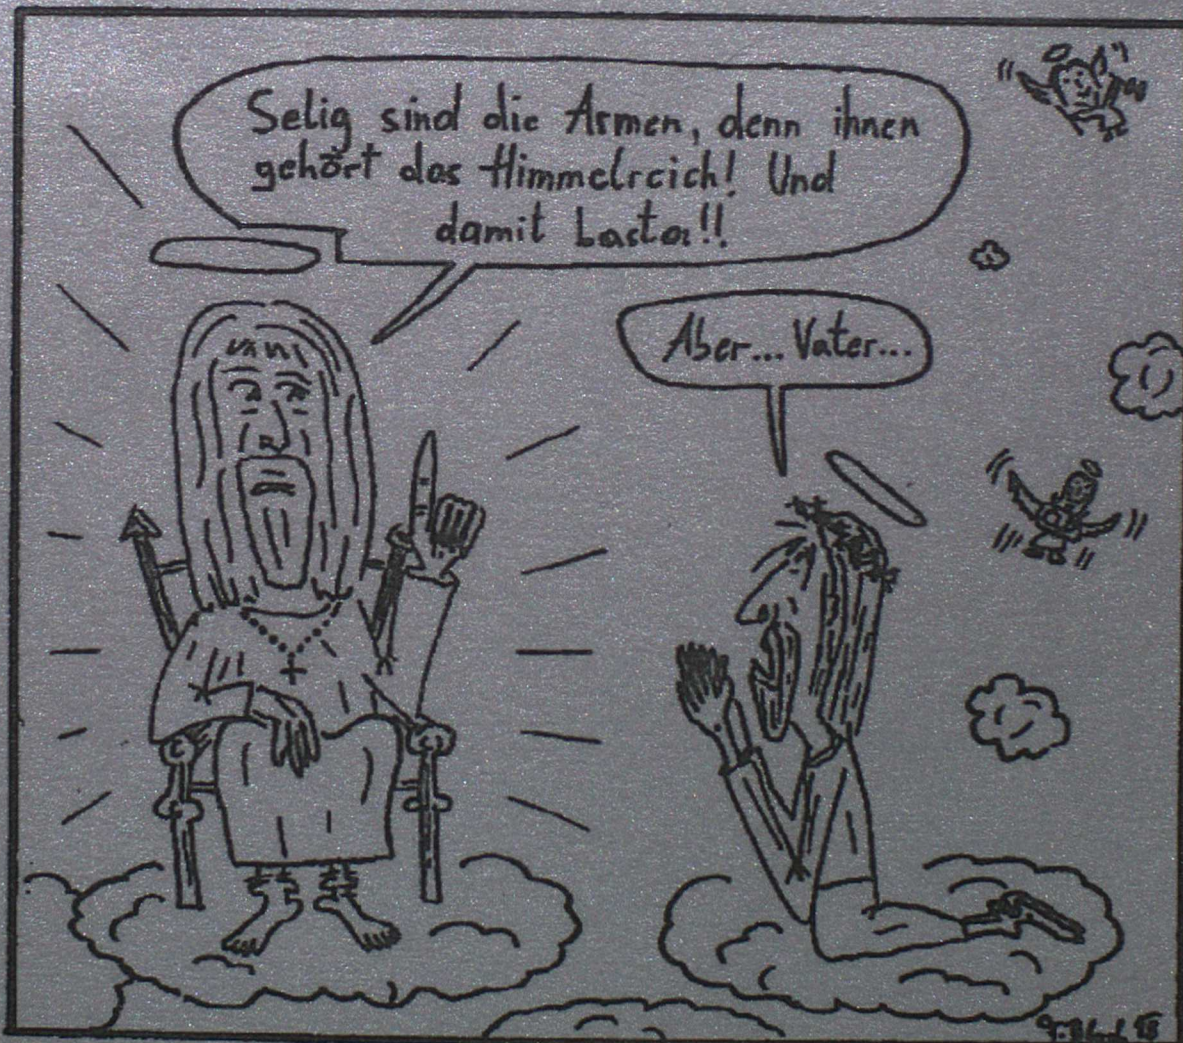 Selig sind die Armen, denn ihnen
gehört das Himmelreich! Und
damit basta!!
Aber... Vater...